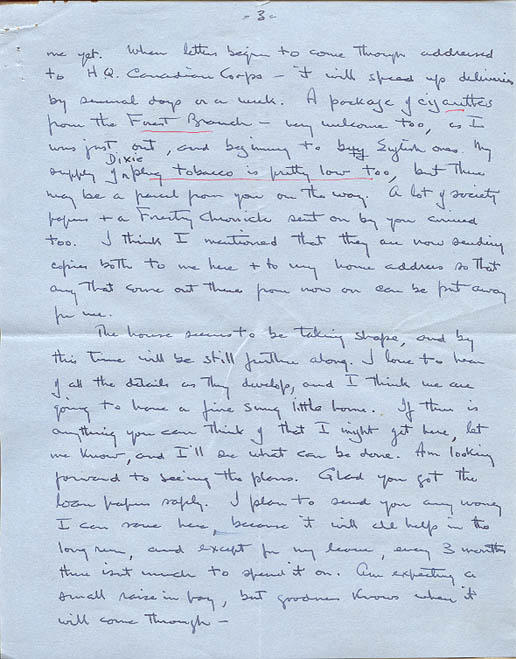 - 3 -
me yet. When letters begin to come through addressed
to H.Q. Canadian Corps – it will speed up deliveries
by several days or a week. A package of cigarettes
from the Forest Branch – very welcome too, as I
was just out, and beginning to buy English ones. My
supply of Dixie plug tobacco is pretty low too, but there
may be a parcel from you on the way. A lot of society
papers + a Forestry Chronicle sent on by you arrived
too. I think I mentioned that they are now sending
copies both to me here + to my home address so that
any that come out there from now on can be put away
for me.
The house seems to be taking shape, and by
this time will be still further along. I love to hear
of all the details as they develop, and I think we are
going to have a fine snug little home. If there is
anything you can think of that I might get here, let
me know, and I'll see what can be done. Am looking
forward to seeing the plans. Glad you got the
loan papers safely. I plan to send you any money
I can save here, because it will all help in the
long run, and except for my leave, every 3 months
there isnt much to spend it on. Am expecting a
small raise in pay, but goodness knows when it
will come through –